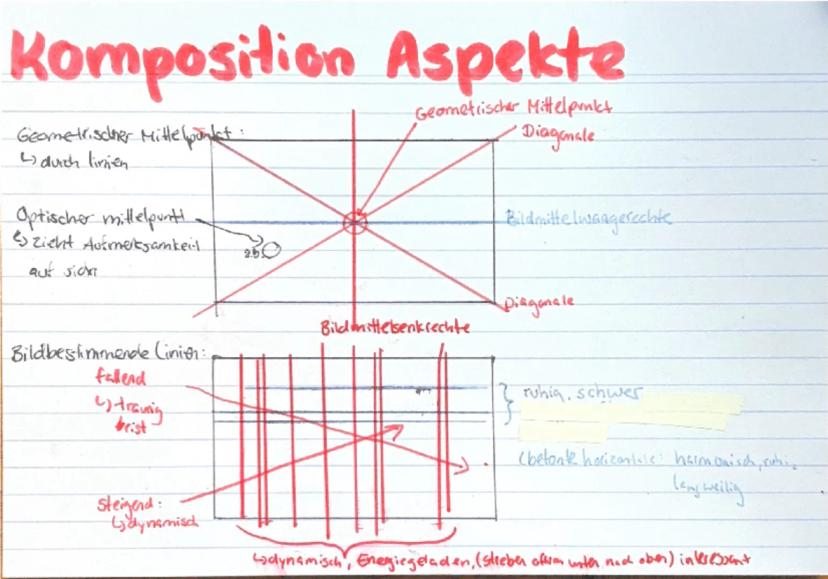 Komposition Aspekte
Geometrischer Mittelpunkt
Diagonale
Geometrischer Mittelpunkt:
↳ durch linien
Optischer mittelpunkt
↳ zieht Aufmerksamkeit
auf sich
z.B.
Bildmittelwaagerechte
Diagonale
Bildmittelsenkrechte
Bildbestimmende Linien:
fallend
↳ traurig
ruhig, schwer
(betonte horizontale: harmonisch, ruhi
langweilig
steigend:
↳ dynamisch
↳ dynamisch, Energiegeladen, (streben unten nach oben) interessant